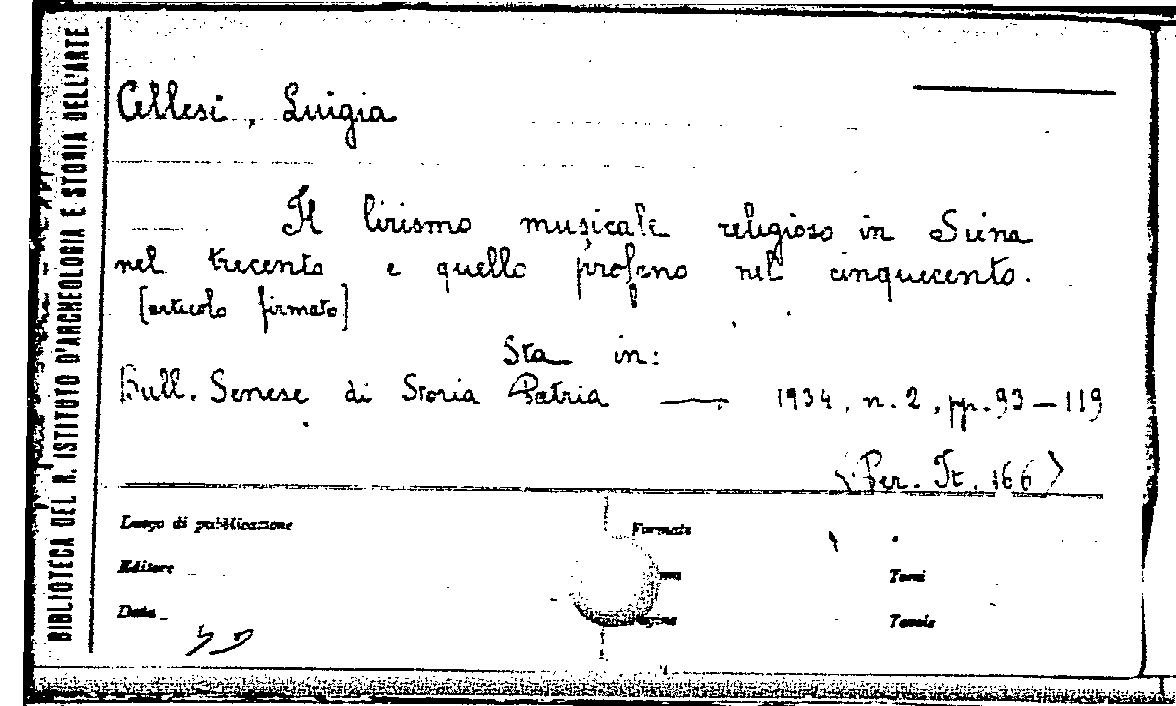 BIBLIOTECA DEL R. ISTITUTO D'ARCHEOLOGIA E STORIA DELL'ARTE
Cellesi, Luigia
Il lirismo musicale religioso in Siena
nel trecento e quello profano nel cinquecento.
[articolo firmato]
Sta in:
Bull. Senese di Storia Patria — 1934, n. 2, pp. 93–119
<Per. It. 166>
Luogo di pubblicazione
Formato
Editore
Tomi
Data
Tavole